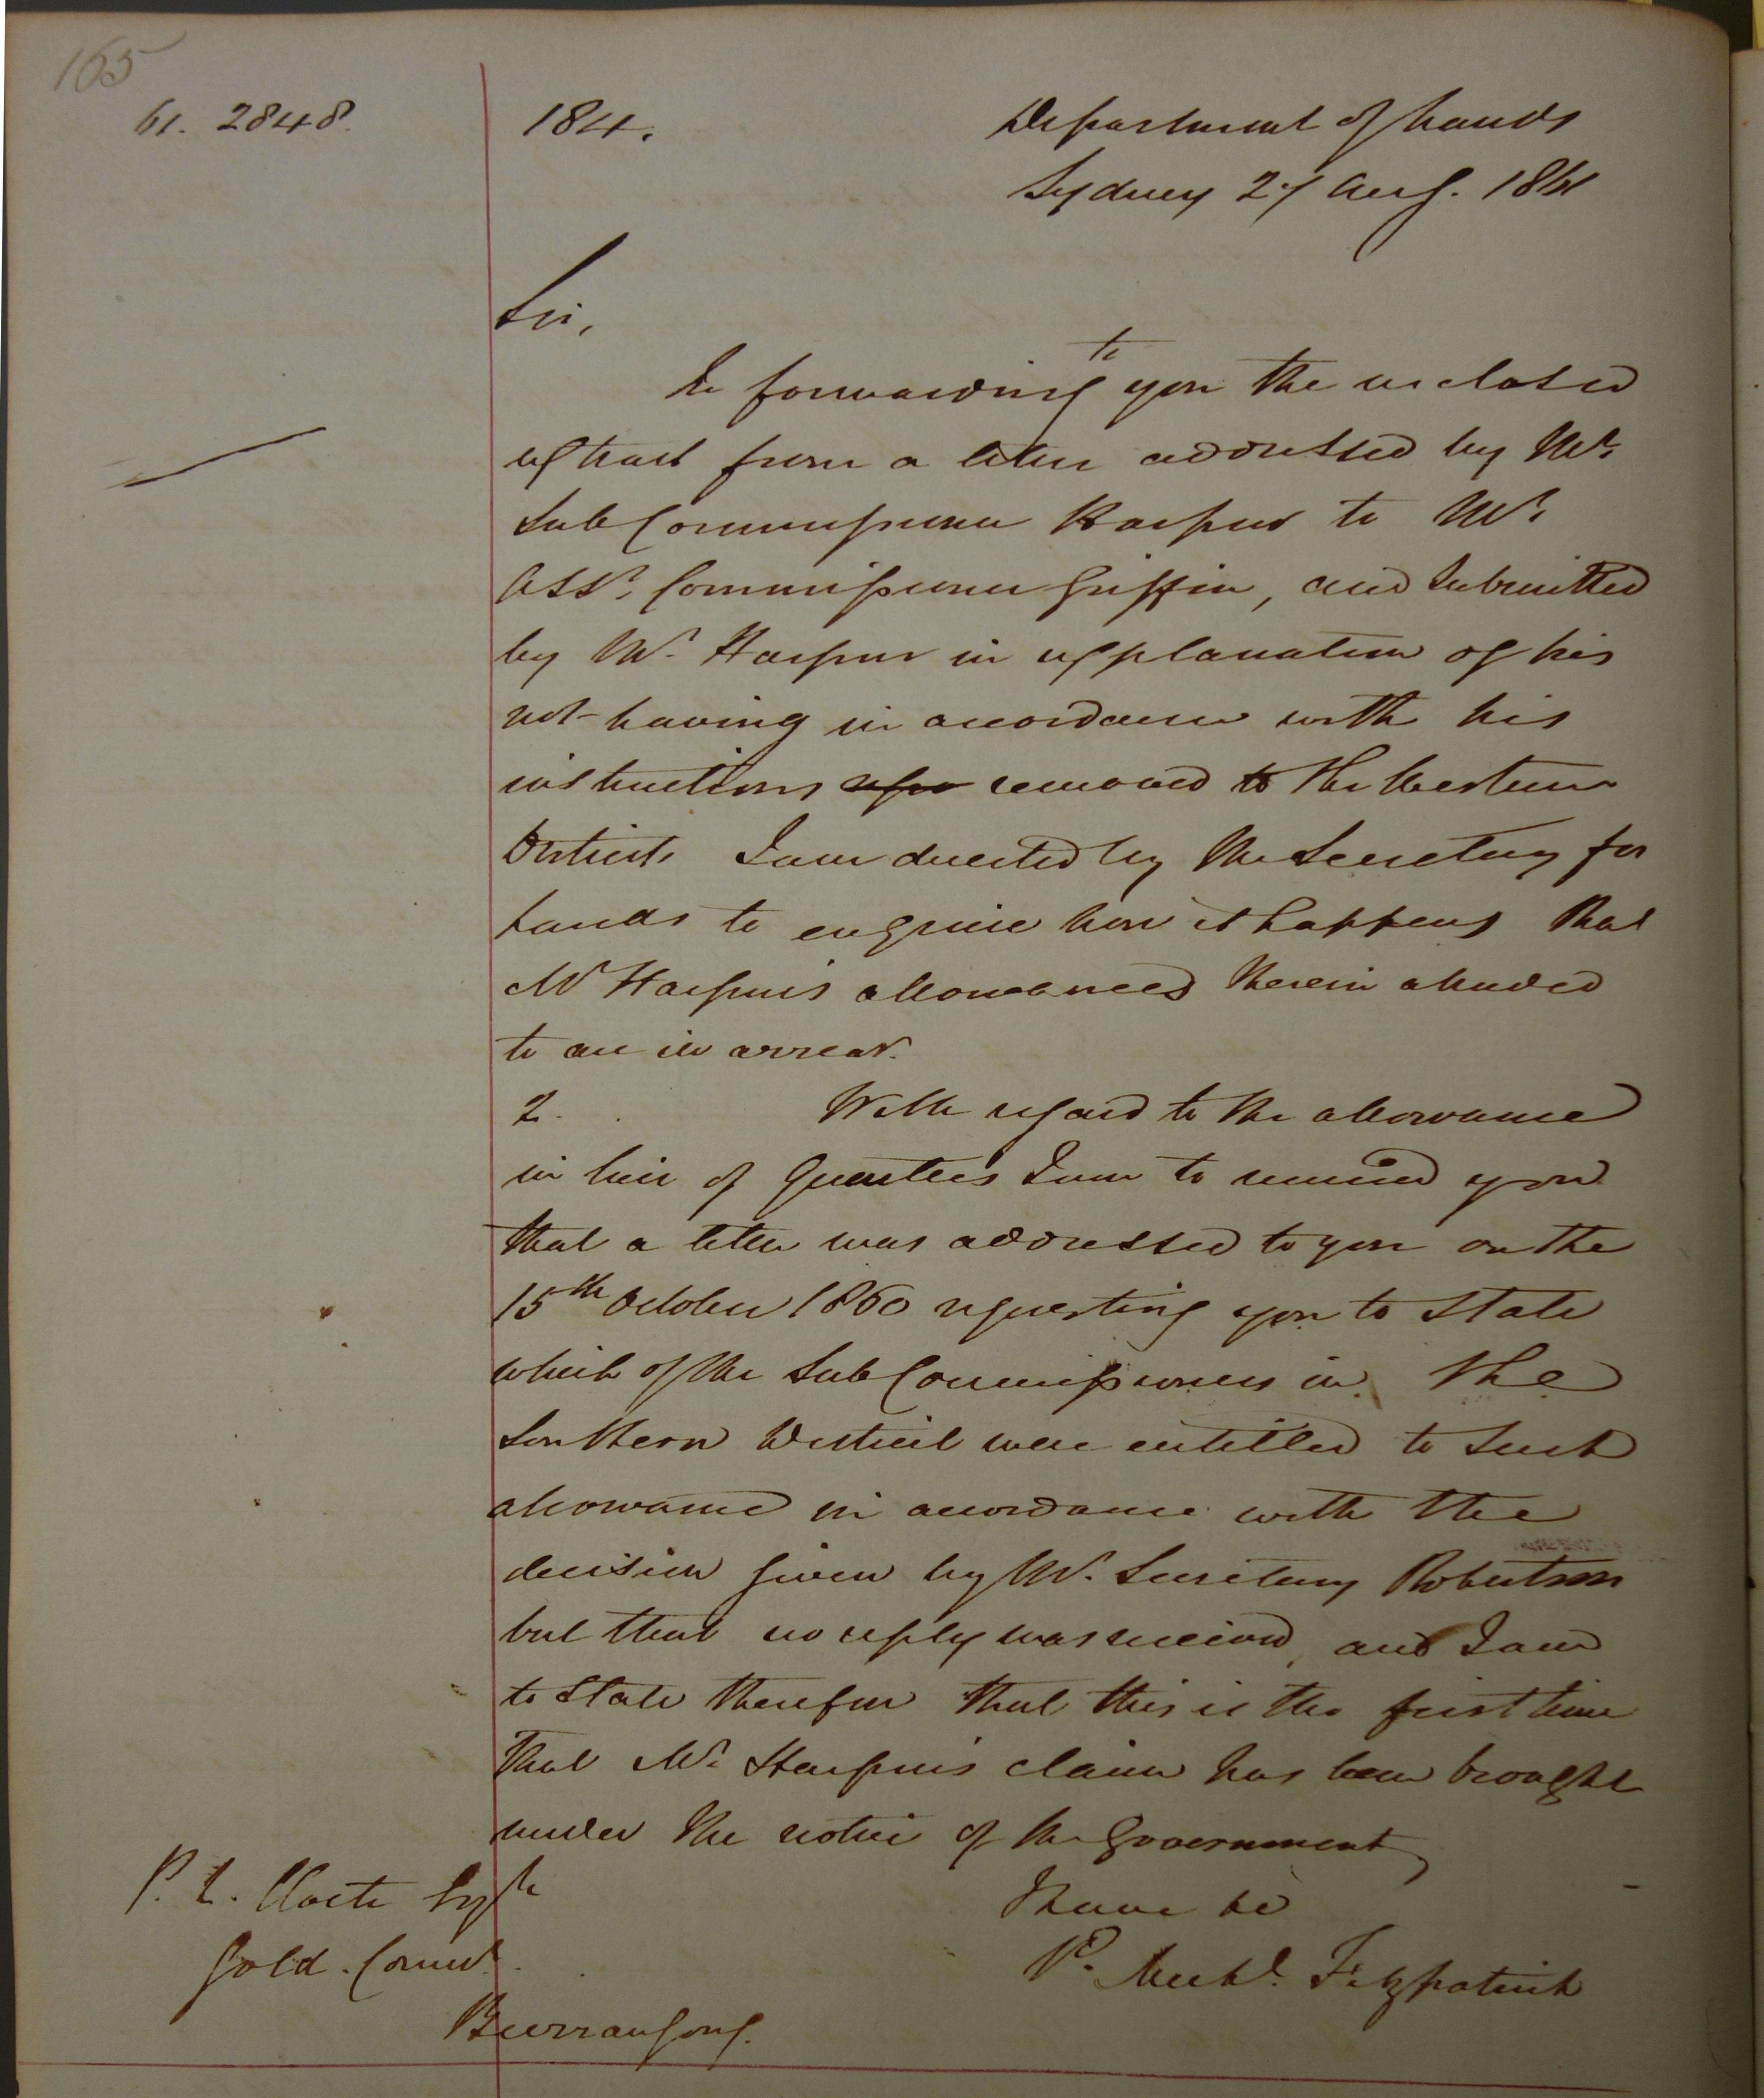 165
61. 2848.
184.
Department of Lands
Sydney 27 Aug. 1861
Sir,
In forwarding to you the enclosed
extract from a letter addressed by Mr.
Sub Commissioner Harpur to Mr.
Asst. Commissioner Griffin, and submitted
by Mr. Harpur in explanation of his
not having in accordance with his
instructions removed to the Western
District, I am directed by the Secretary for
Lands to enquire how it happens that
Mr Harpur's allowances therein alluded
to are in arrear.
2. With regard to the allowance
in lieu of Quarters I am to remind you
that a letter was addressed to you on the
15th October 1860 requesting you to state
which of the Sub Commissioners in the
Southern District were entitled to such
allowance in accordance with the
decision given by Mr. Secretary Robertson
but that no reply was received, and I am
to state therefore that this is the first time
that Mr. Harpur's claim has been brought
under the notice of the Government
I have &c
Michl. Fitzpatrick
P. L. Cloete Esqre
Gold. Commr.
Burrangong.